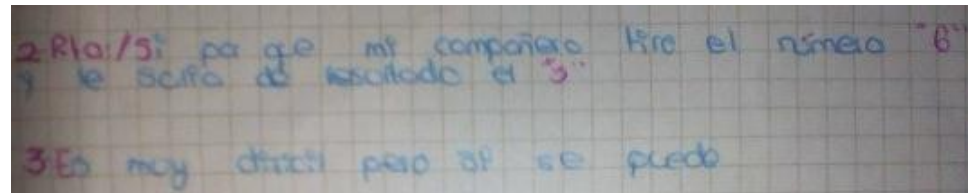 2-R/a:/Si por qe mi compañero tiro el número "6"
y le salio de resultado el "3"
3-Es muy dificil pero si se puede